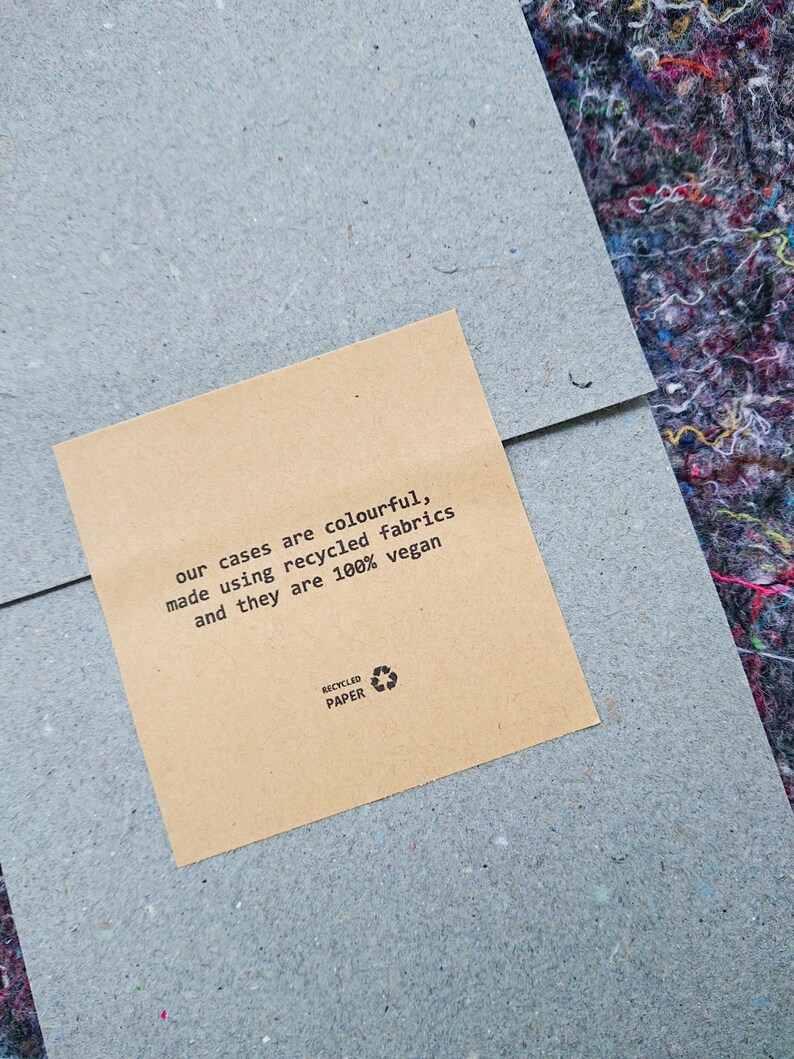 our cases are colourful,
made using recycled fabrics
and they are 100% vegan
RECYCLED
PAPER